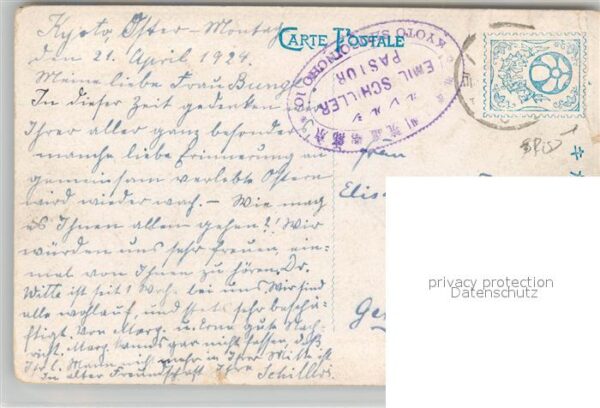 CARTE POSTALE
Kyoto, Oster-Montag
den 21. April 1924.
Meine liebe Frau Bung
In dieser Zeit gedenken
Ihrer aller ganz besonder
manche liebe Erinnerung an
gemeinsam verlebte Ostern
wird wieder wach. – Wie mag
es Ihnen allen gehen?! Wir
würden uns sehr freuen, ein-
mal von Ihnen zu hören. Dr.
Witte ist seit 1 Woch. bei uns Wir sind
alle wohlauf, und stets sehr beschä-
ftigt. Von Marg. u. gute Nach-
richt. Marg. kann's gar nicht fassen, daß
Ihr l. Mann nicht mehr in Ihrer Mitte ist
In alter Freundschaft Ihre Schillers.
KYOTO SHOGOINCHO 10
EMIL SCHILLER
PASTOR
シルレル
Frau
Elis
Ger
privacy protection
Datenschutz